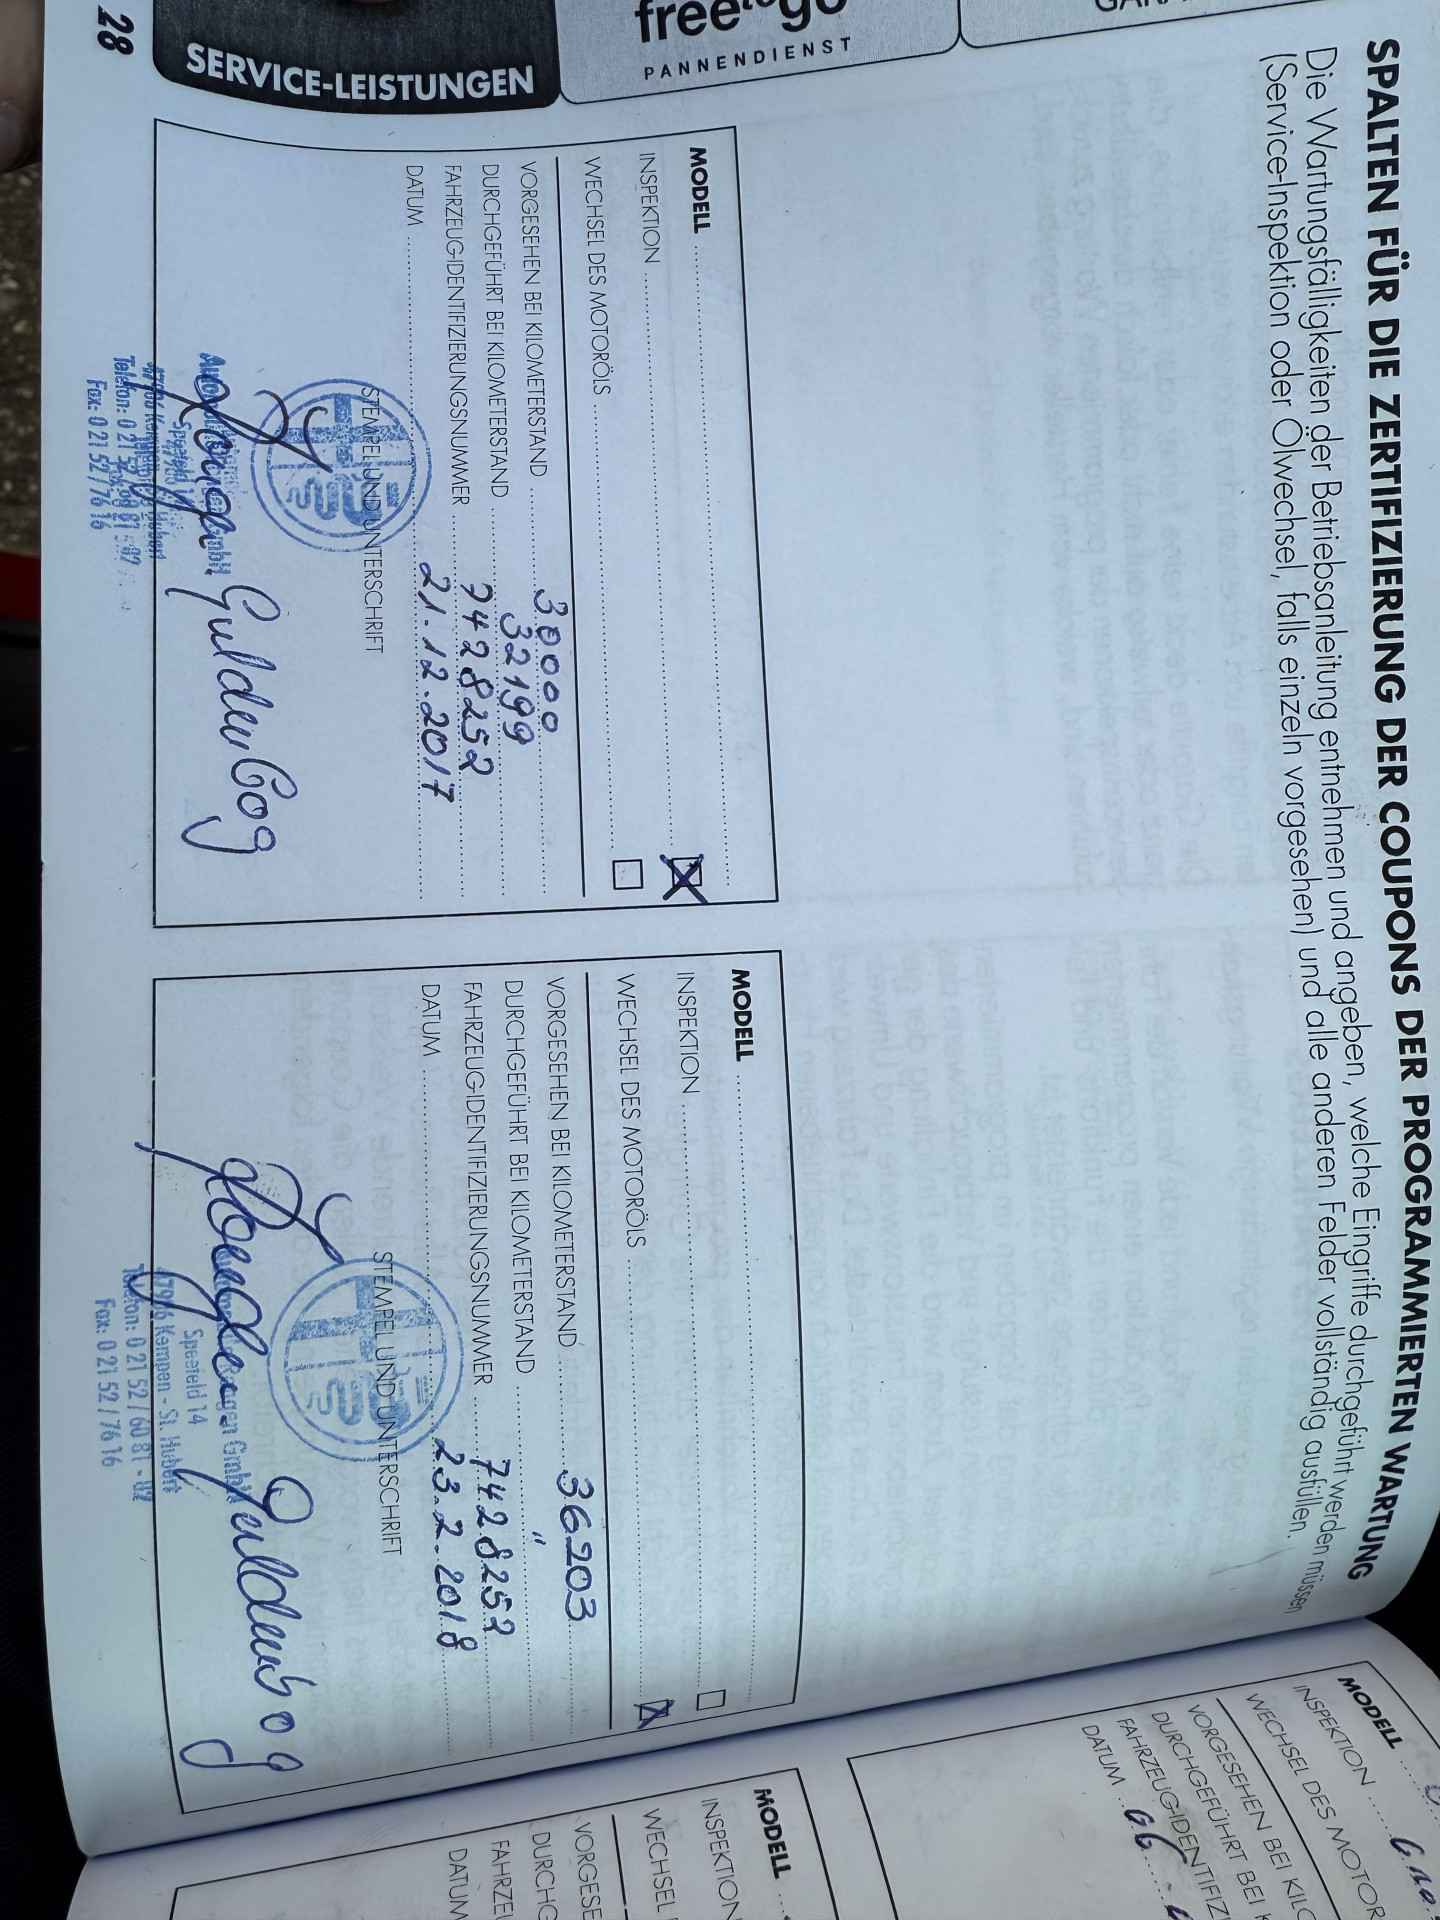 SPALTEN FÜR DIE ZERTIFIZIERUNG DER COUPONS DER PROGRAMMIERTEN WARTUNG
Die Wartungsfälligkeiten der Betriebsanleitung entnehmen und angeben, welche Eingriffe durchgeführt werden müssen
(Service-Inspektion oder Ölwechsel, falls einzeln vorgesehen) und alle anderen Felder vollständig ausfüllen.
free to go
PANNENDIENST
SERVICE-LEISTUNGEN
28
MODELL
INSPEKTION
WECHSEL DES MOTORÖLS
VORGESEHEN BEI KILOMETERSTAND 30000
DURCHGEFÜHRT BEI KILOMETERSTAND 32199
FAHRZEUG-IDENTIFIZIERUNGSNUMMER 7428252
DATUM 21.12.2017
STEMPEL UND UNTERSCHRIFT
Speefeld 14
Fax: 0 21 52 / 76 16
MODELL
INSPEKTION
WECHSEL DES MOTORÖLS
VORGESEHEN BEI KILOMETERSTAND 36203
DURCHGEFÜHRT BEI KILOMETERSTAND "
FAHRZEUG-IDENTIFIZIERUNGSNUMMER 7428252
DATUM 23.2.2018
STEMPEL UND UNTERSCHRIFT
GmbH
Speefeld 14
47906 Kempen - St. Hubert
Telefon: 0 21 52 / 60 81 - 82
Fax: 0 21 52 / 76 16
MODELL
INSPEKTION
WECHSEL DES MOTOR
VORGESEHEN BEI KILO
DURCHGEFÜHRT BEI K
FAHRZEUG-IDENTIFIZI
DATUM
MODELL
INSPEKTION
WECHSEL
VORGESE
DURCHG
FAHRZE
DATUM